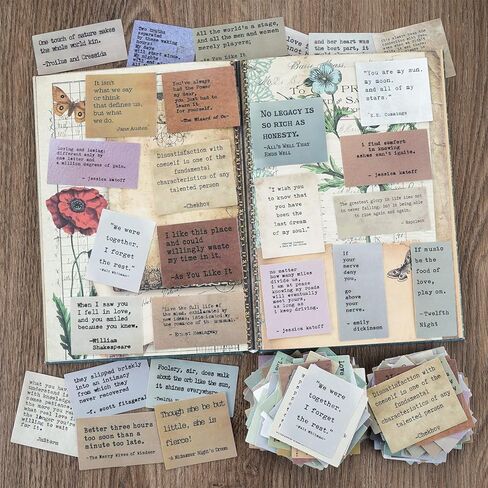 One touch of nature makes
the whole world kin.
-Troilus and Cressida
Two truths
separated
by these
waking
hours
All the world's a stage,
And all the men and women
merely players;
and her heart was
the best part, it
It isn't
what we say
or think
that defines us,
but what
we do.
Jane Austen
You've always
had the Power
my dear,
you just had to
learn it
for yourself.
-The Wizard of Oz
Loving and losing:
different only by
one letter and
a million degrees of pain.
- jessica katoff
Dissatisfaction with
oneself is one of the
fundamental
characteristics of any
talented person
-Chekhov
"We were
together.
I forget
the rest."
-Walt Whitman
I like this place
and could
willingly waste
my time in it.
-As You Like It
When I saw you
I fell in love,
and you smiled
because you knew.
-William
Shakespeare
romance of the unusual.
- Ernest Hemingway
"You are my sun,
my moon,
and all of my
stars."
-E.E. Cummings
NO LEGACY IS
SO RICH AS
HONESTY.
-ALL'S WELL THAT
ENDS WELL
i find comfort
in knowing
ashes can't ignite.
- jessica katoff
The greatest glory in life lies not
in never falling, but in being able
to rise again and again.
- Napoleon
"I wish you
to know that
you have been
the last dream
of my soul."
no matter
how many miles
divide us,
i am at peace
knowing my roads
will eventually
meet yours,
as long as
i keep driving.
- jessica katoff
If
your
nerve
deny
you,
go
above
your
nerve.
- emily
dickinson
If music
be the
food of
love,
play on.
-Twelfth
Night
they slipped briskly
into an intimacy
from which they
never recovered
-f. scott fitzgerald
Foolery, sir, does walk
about the orb like the sun,
it shines everywhere.
Better three hours
too soon than a
minute too late.
-The Merry Wives of Windsor
Though she be but
little, she is
fierce!
-A Midsummer Night's Dream
"We were
together.
I forget
the rest."
-Walt Whitman
Dissatisfaction with
oneself is one of the
fundamental
characteristics of any
talented person
-Chekhov